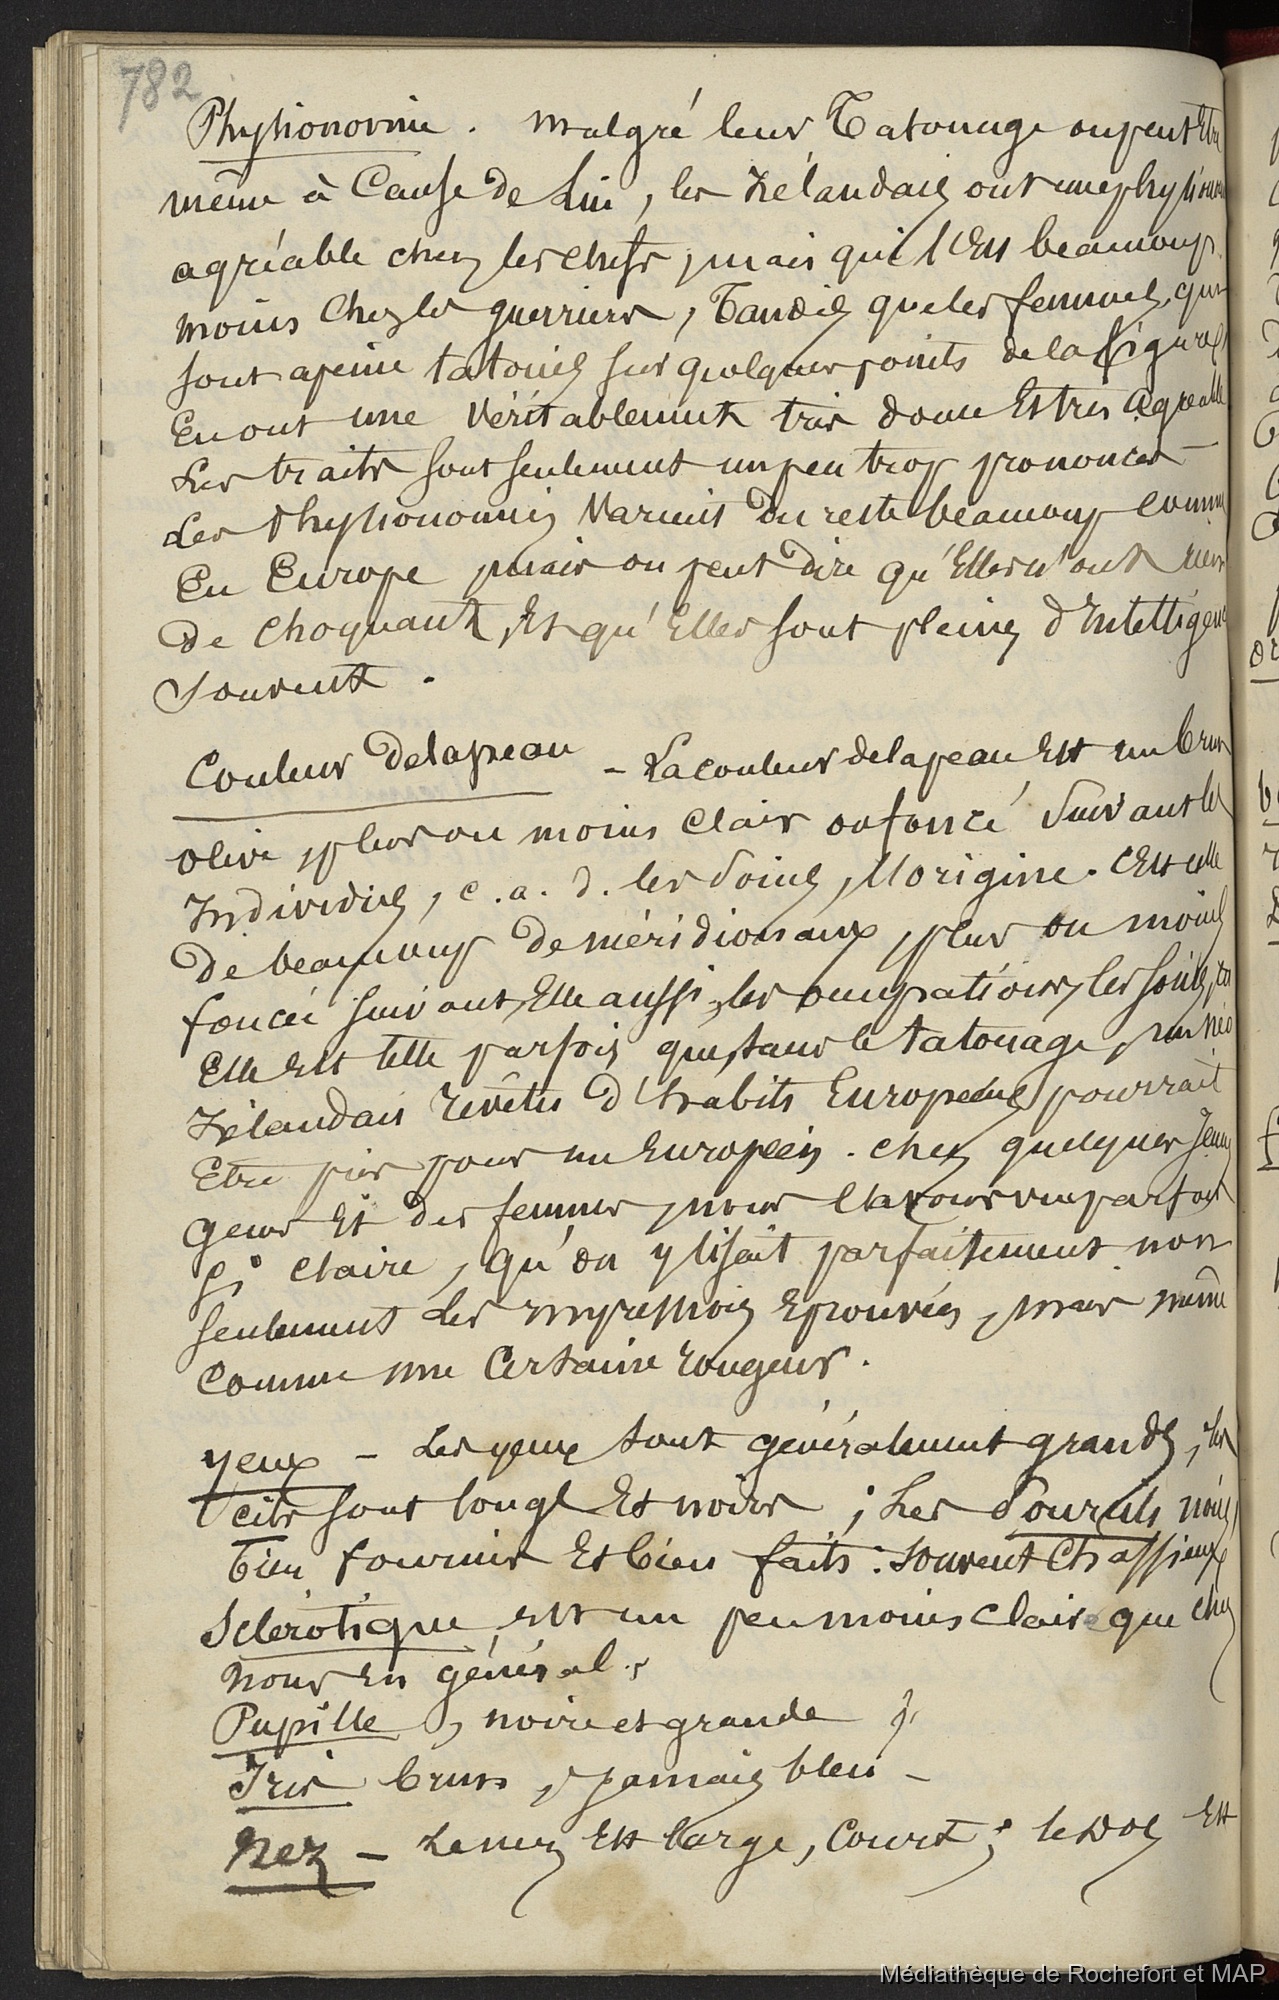 782
Physionomie . Malgré leur Tatouage ou peut Etre
même à Cause de Lui, les Zélandais ont une physionom
agréable chez les chefs, mais qui l'Est beaucoup
moins Chez les guerriers, Tandis que les femmes, qui
sont apeine tatouées sur quelques points de la figure
En ont une Véritablement très douce Et très agréable
Les traits sont seulement un peu trop prononcés —
Les Physionomies Varient du reste beaucoup comme
En Europe, mais on peut Dire qu'Elles n'ont rien
De Choquant, Et qu'Elles sont pleines d'Intelligence
souvent .
Couleur De la peau – La couleur de la peau Est un brun
olive, plus ou moins clair ou foncé Suivant les
Individus, c. a. d. les Soins, l'origine. C'Est celle
De beaucoup De méridionaux, plus ou moins
foncée suivant, Elle aussi, les occupations, les soins,
Elle Est telle parfois que, sans le tatouage, un Néo
Zélandais revêtu D'habits Européens pourrait
Etre pris pour un Européen . chez quelques Jeunes
gens Et des femmes, nous l'avons vue parfois
si claire, qu'on y lisait parfaitement non
seulement les impressions Eprouvées, mais même
comme une Certaine rougeur.
Yeux – Les yeux sont généralement grands, les
cils sont longs Et noirs ; Les Sourcils noirs,
bien fournis Et bien faits : souvent Chassieux
Sclérotique, est un peu moins claire que chez
nous En général.
Pupille, noire et grande
Iris brun, jamais bleu –
Nez – Le nez Est large, Court ; le Dos Est
Médiathèque de Rochefort et MAP